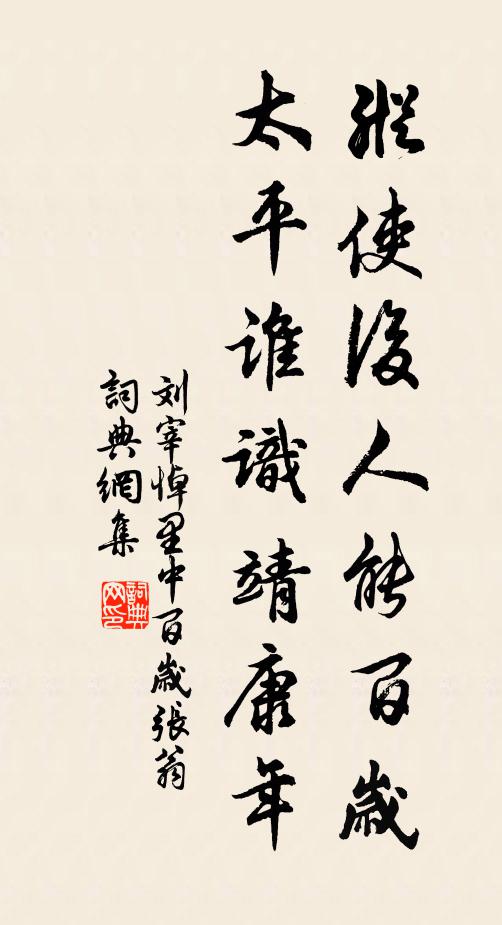 縱使後人能百歲
太平誰識靖康年
刘宰悼里中百歲張翁
詞典網集
詞典
网印